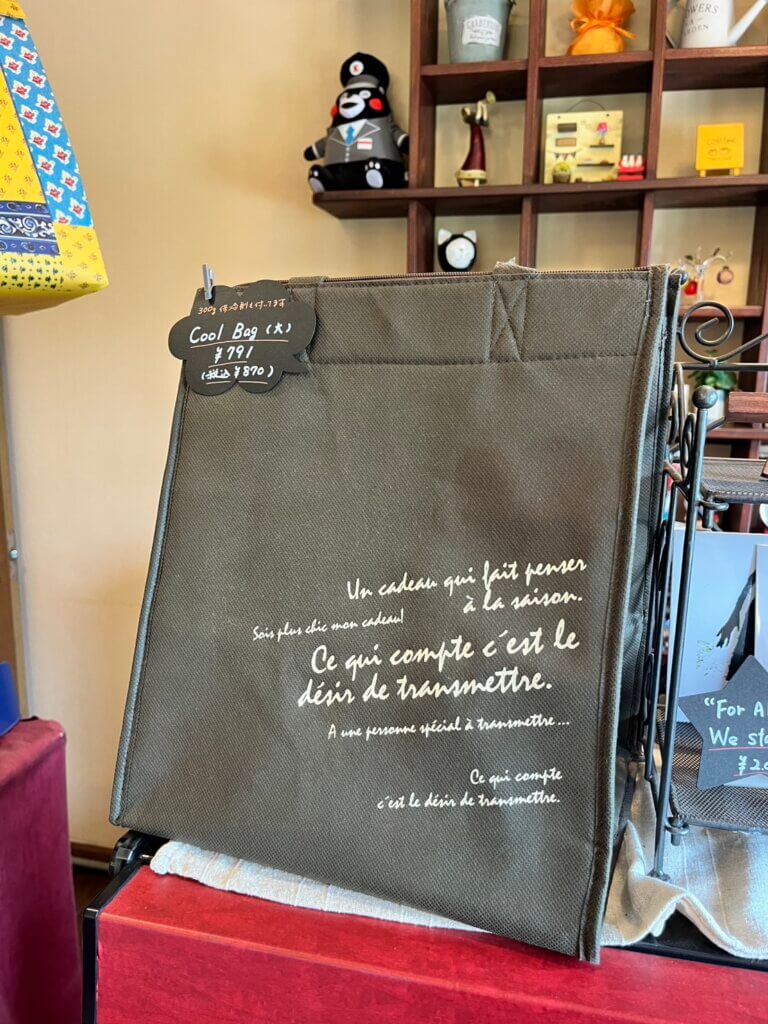 300g保冷剤も付いてます
Cool Bag (大)
¥791
(税込¥870)
Un cadeau qui fait penser
à la saison.
Sois plus chic mon cadeau!
Ce qui compte c'est le
désir de transmettre.
A une personne spécial à transmettre...
Ce qui compte
c'est le désir de transmettre.
"For A
We st
¥2.